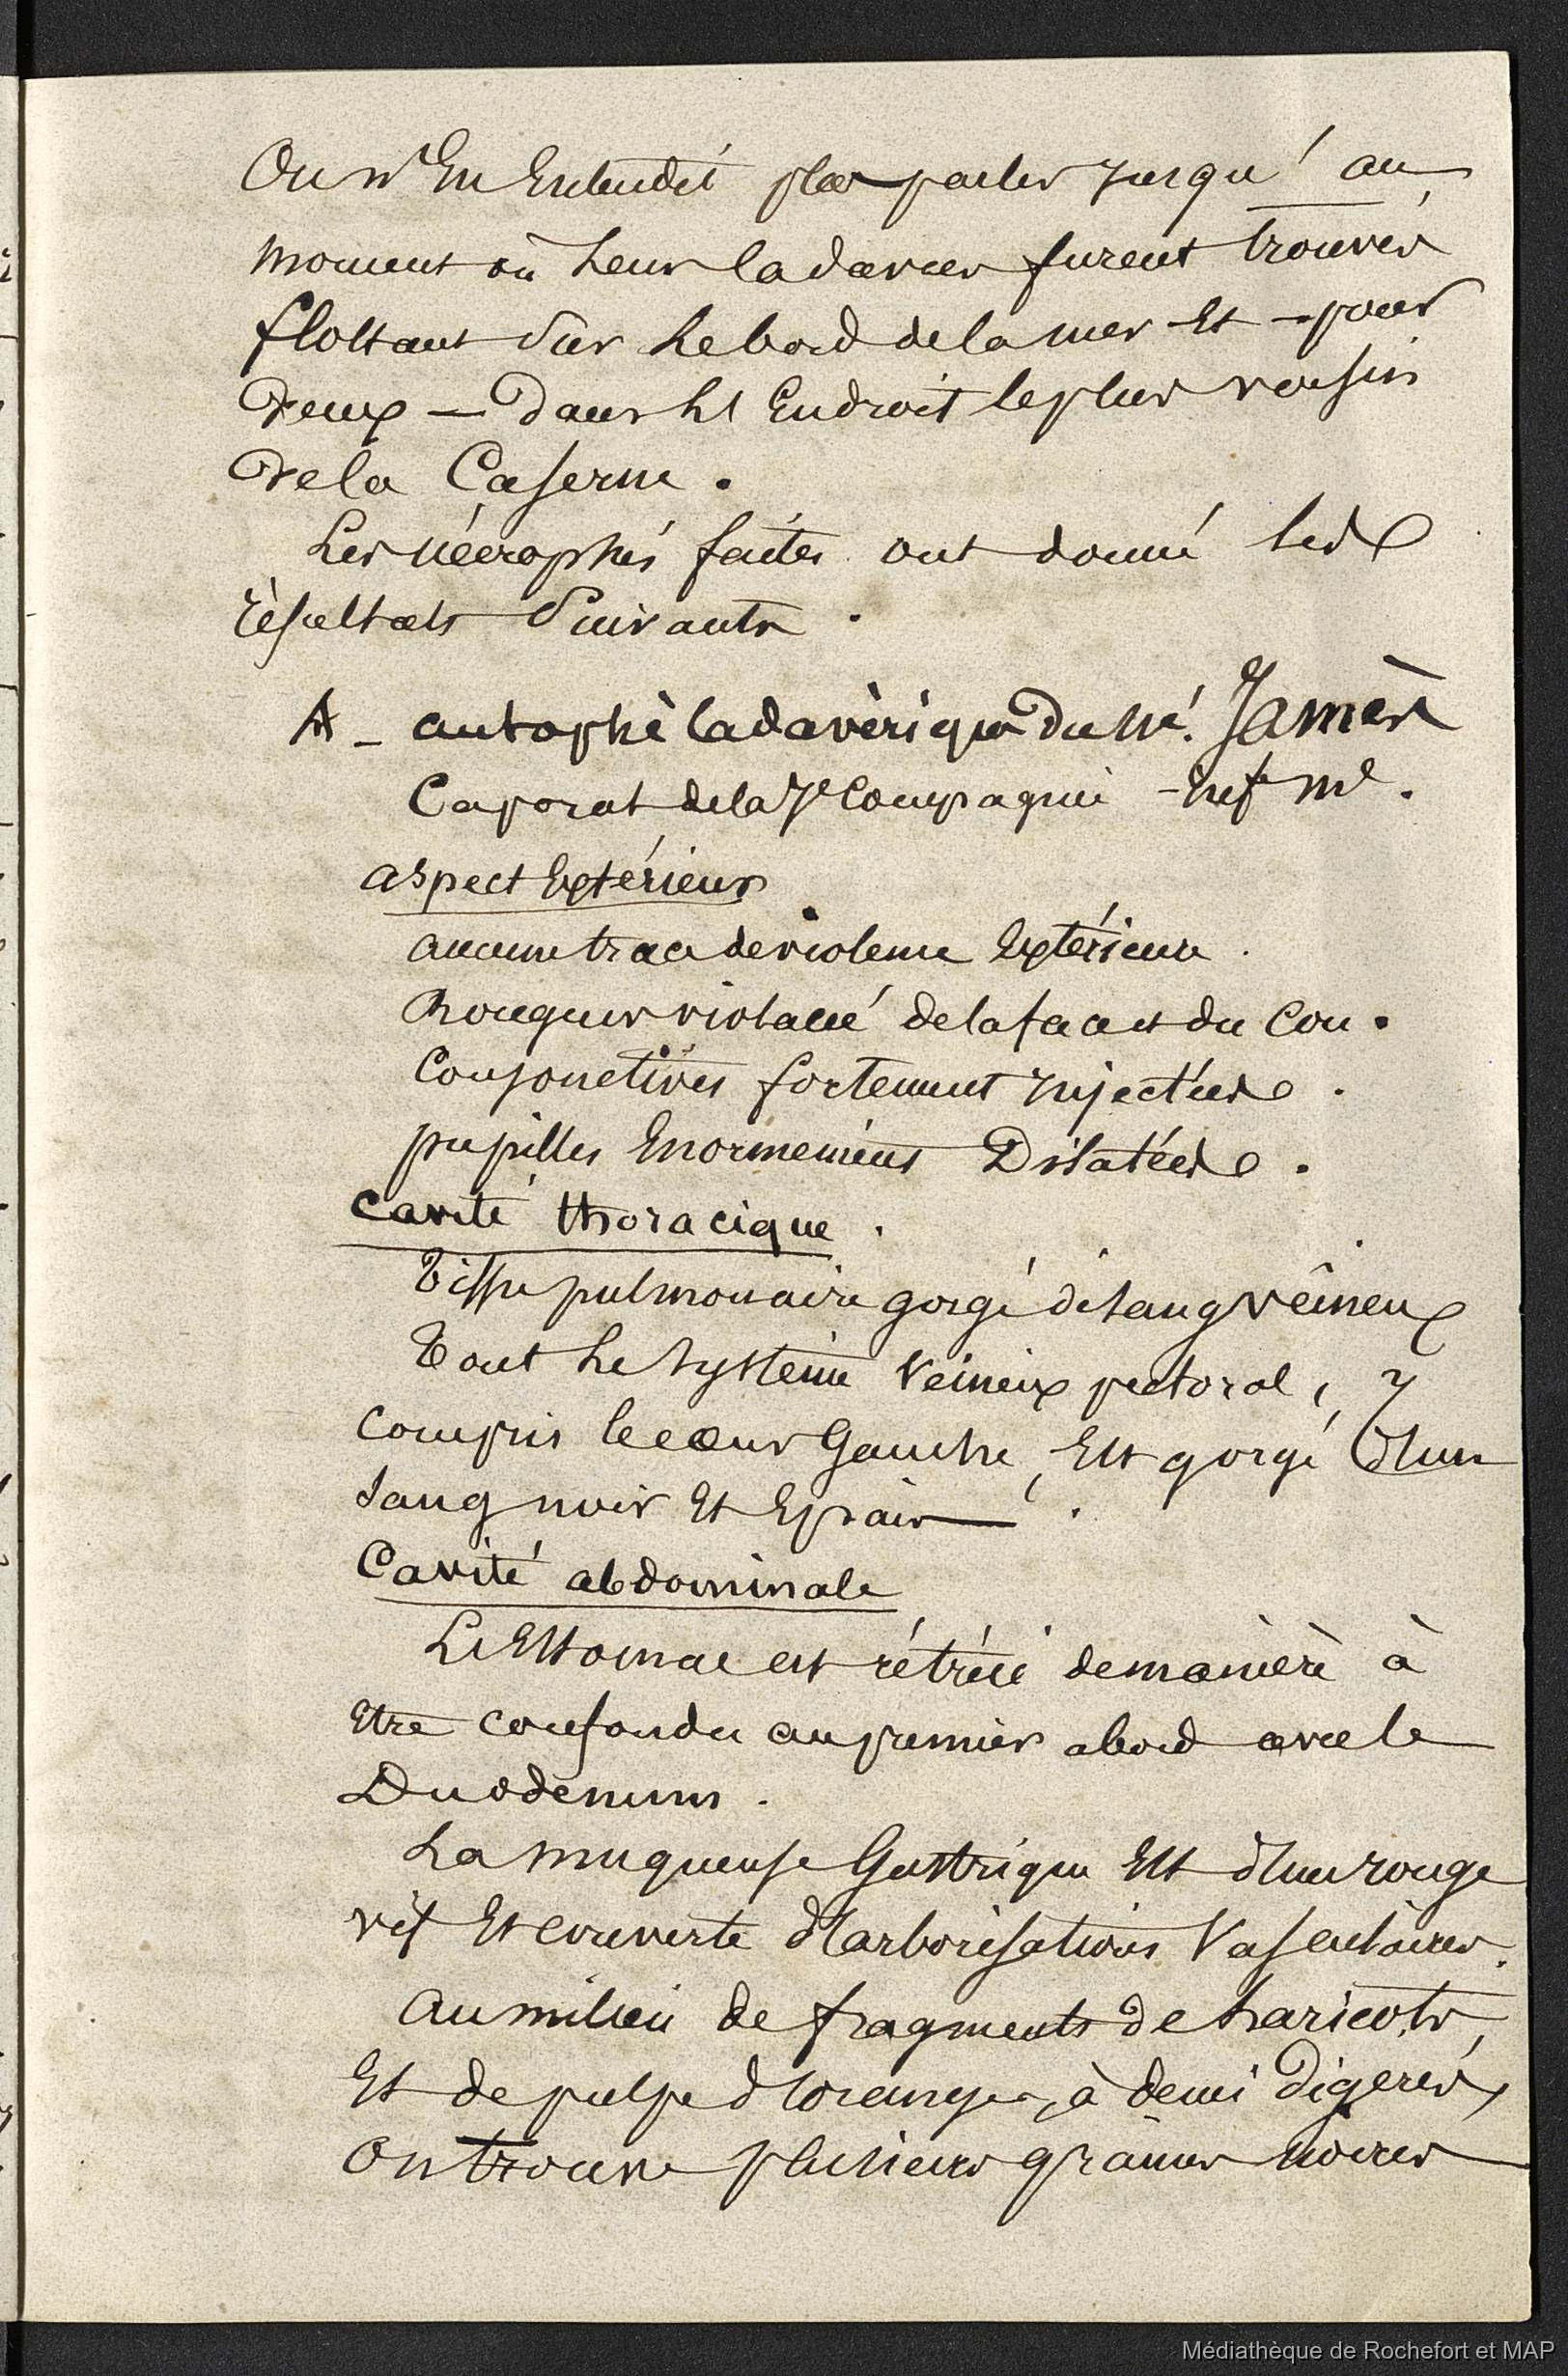 On n'En Entendit plus parler jusqu'au
moment où Leurs Cadavres furent trouvés
flottant Sur Le bord de la mer Et - pour
Deux - Dans L'Endroit le plus voisin
De la Caserne.
Les nécropsies faites ont donné Les
résultats Suivants.
A - autopsie Cadavérique Du né. James
Caporal de la 7e Compagnie - Inf. Me.
aspect Extérieur
aucune trace de violence Extérieure.
Rougeur violacée de la face et du Cou.
Conjonctives fortement injectées.
pupilles Enormement Dilatées.
Cavité thoracique.
Tissu pulmonaire gorgé de sang veineux
Tout Le système Veineux pectoral, y
compris le cœur Gauche, Est gorgé d'un
sang noir Et Epais.
Cavité abdominale
L'Estomac est rétréci de manière à
Etre confondu au premier abord avec le
Duodenum.
La muqueuse Gastrique Est d'un rouge
vif Et couverte d'arborisations Vasculaires.
Au milieu de fragments de haricots,
Et de pulpe d'orange, à demi Digérés,
On trouve plusieurs graines noires
Médiathèque de Rochefort et MAP